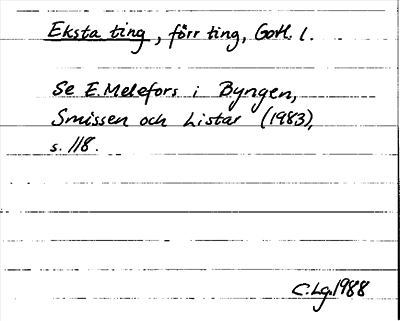 Eksta ting, förr ting, Gotl. l.
Se E. Melefors i Byngen,
Smissen och Listar (1983),
s. 118.
C. Lg. 1988